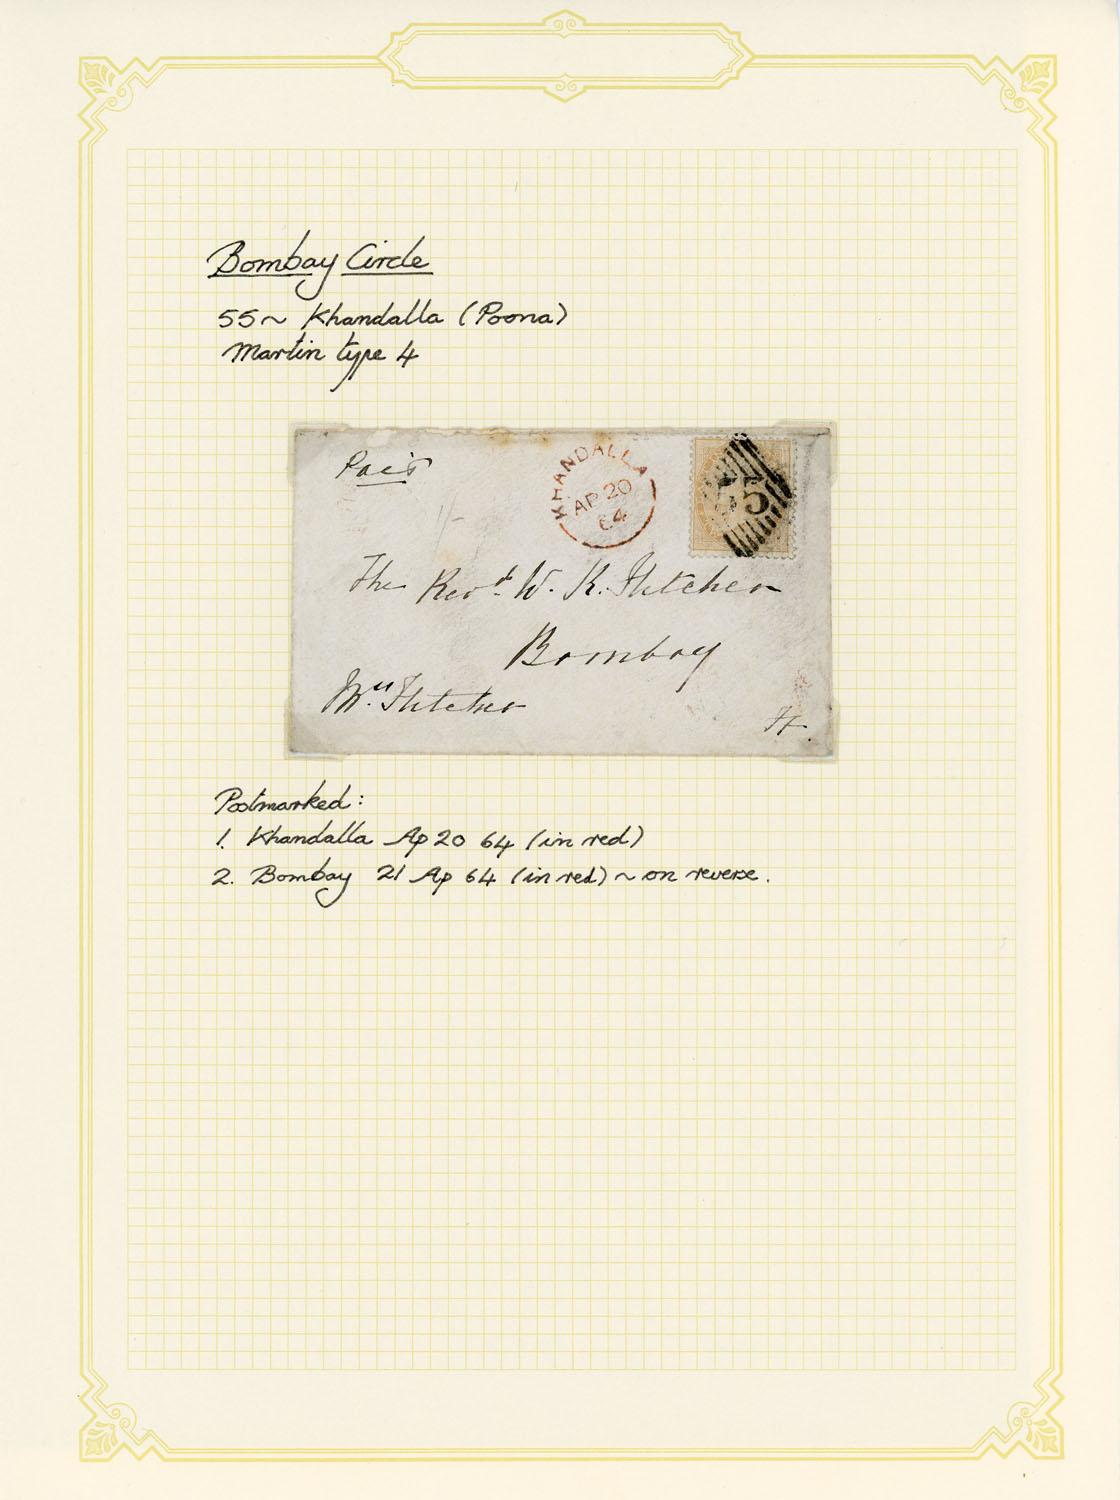 Bombay Circle
55 ~ Khandalla (Poona)
Martin type 4
Paid
KHANDALLA
AP 20
64
55
1/-
The Revd. W. K. Fletcher
Bombay
Mrs. Fletcher
Postmarked:
1. Khandalla Ap 20 64 (in red)
2. Bombay 21 Ap 64 (in red) ~ on reverse.